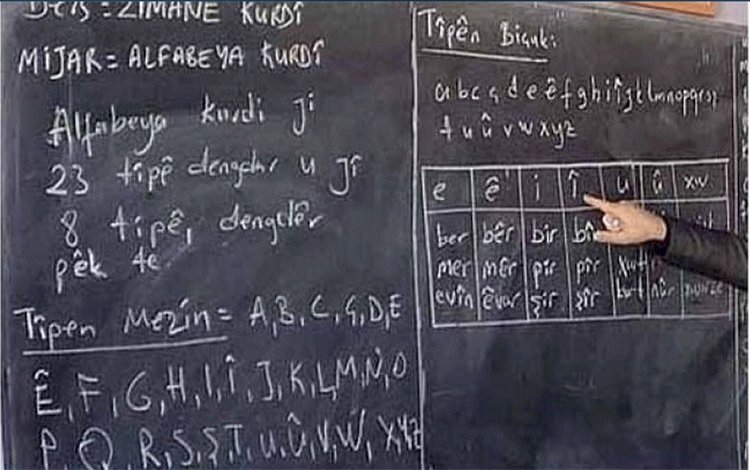 Ders = ZIMANE KURDÎ
MIJAR = ALFABEYA KURDÎ
Alfabeya kurdi ji
23 tîpê dengdar u Jî
8 tîpê, dengdêr
pêk te
Tîpen Mezin = A, B, C, Ç, D, E
Ê, F, G, H, I, Î, J, K, L, M, N, O
P, Q, R, S, Ş, T, U, Û, V, W, X, Y, Z
Tîpên Biçuk:
a b c ç d e ê f g h i î j k l m n o p q r s ş
t u û v w x y z
e ê i î u û xw
ber bêr bir
mer mêr pir pîr
evîn êvar şir şîr kurt nûr